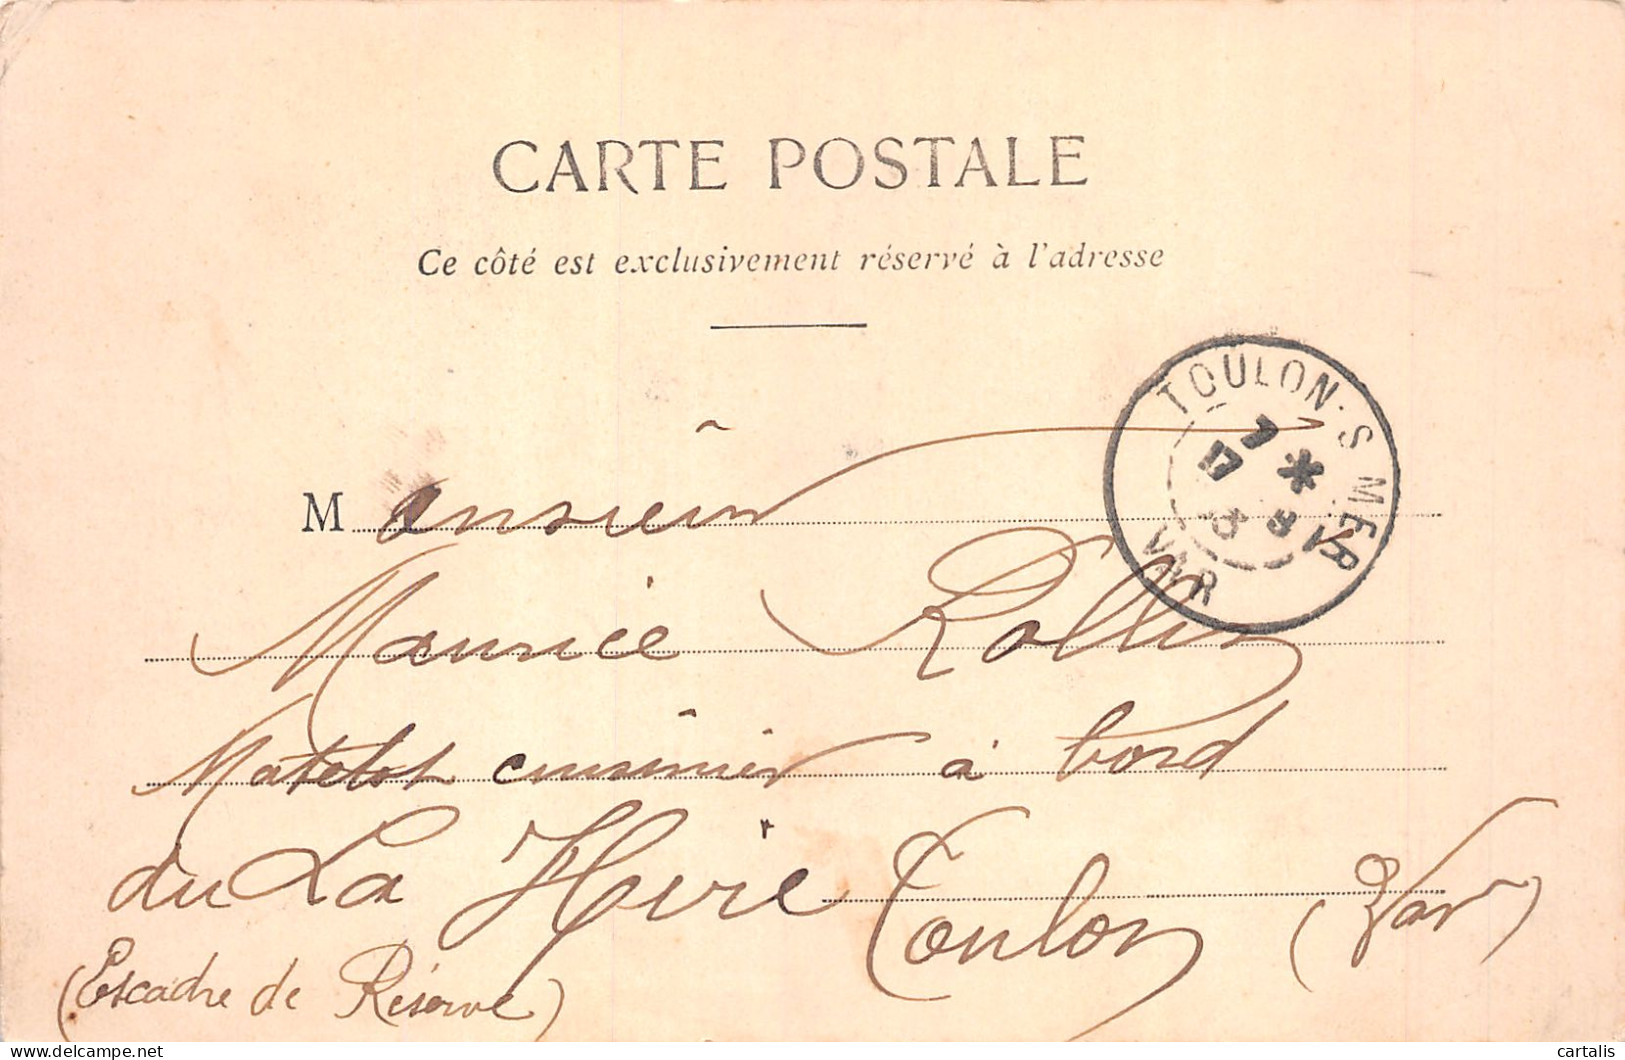 CARTE POSTALE
Ce côté est exclusivement réservé à l'adresse
TOULON·S MER
VAR
7 *
17
Monsieur
Maurice Rollin
Matelot cuisinier à bord
du La Hire Toulon (Var)
(Escadre de Réserve)
delcampe.net
cartalis